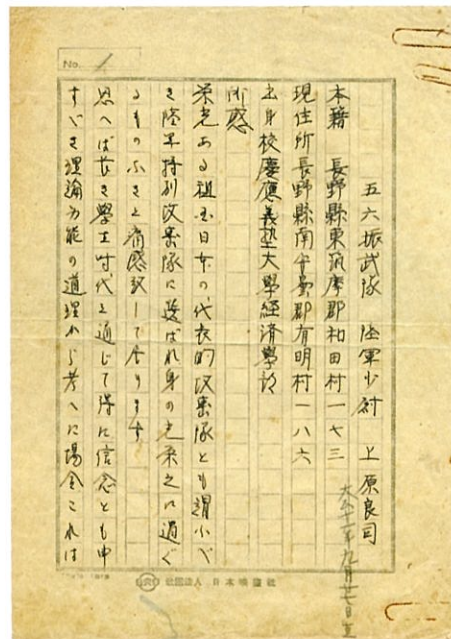 No. 1
五六振武隊 陸軍少尉 上原良司
本籍 長野縣東筑摩郡和田村一七三
現住所長野縣南安曇郡有明村一八六
大正十一年九月廿七日生
出身校慶應義塾大學経済學部
所感
栄光ある祖國日本の代表的攻撃隊とも謂ふべ
き陸軍特別攻撃隊に選ばれ身の光栄之に過ぐ
るものなきと痛感致して居ります
思へば長き學生時代を通じて得た信念とも申
すべき理論万能の道理から考へた場合これは
社団法人 日本映画社